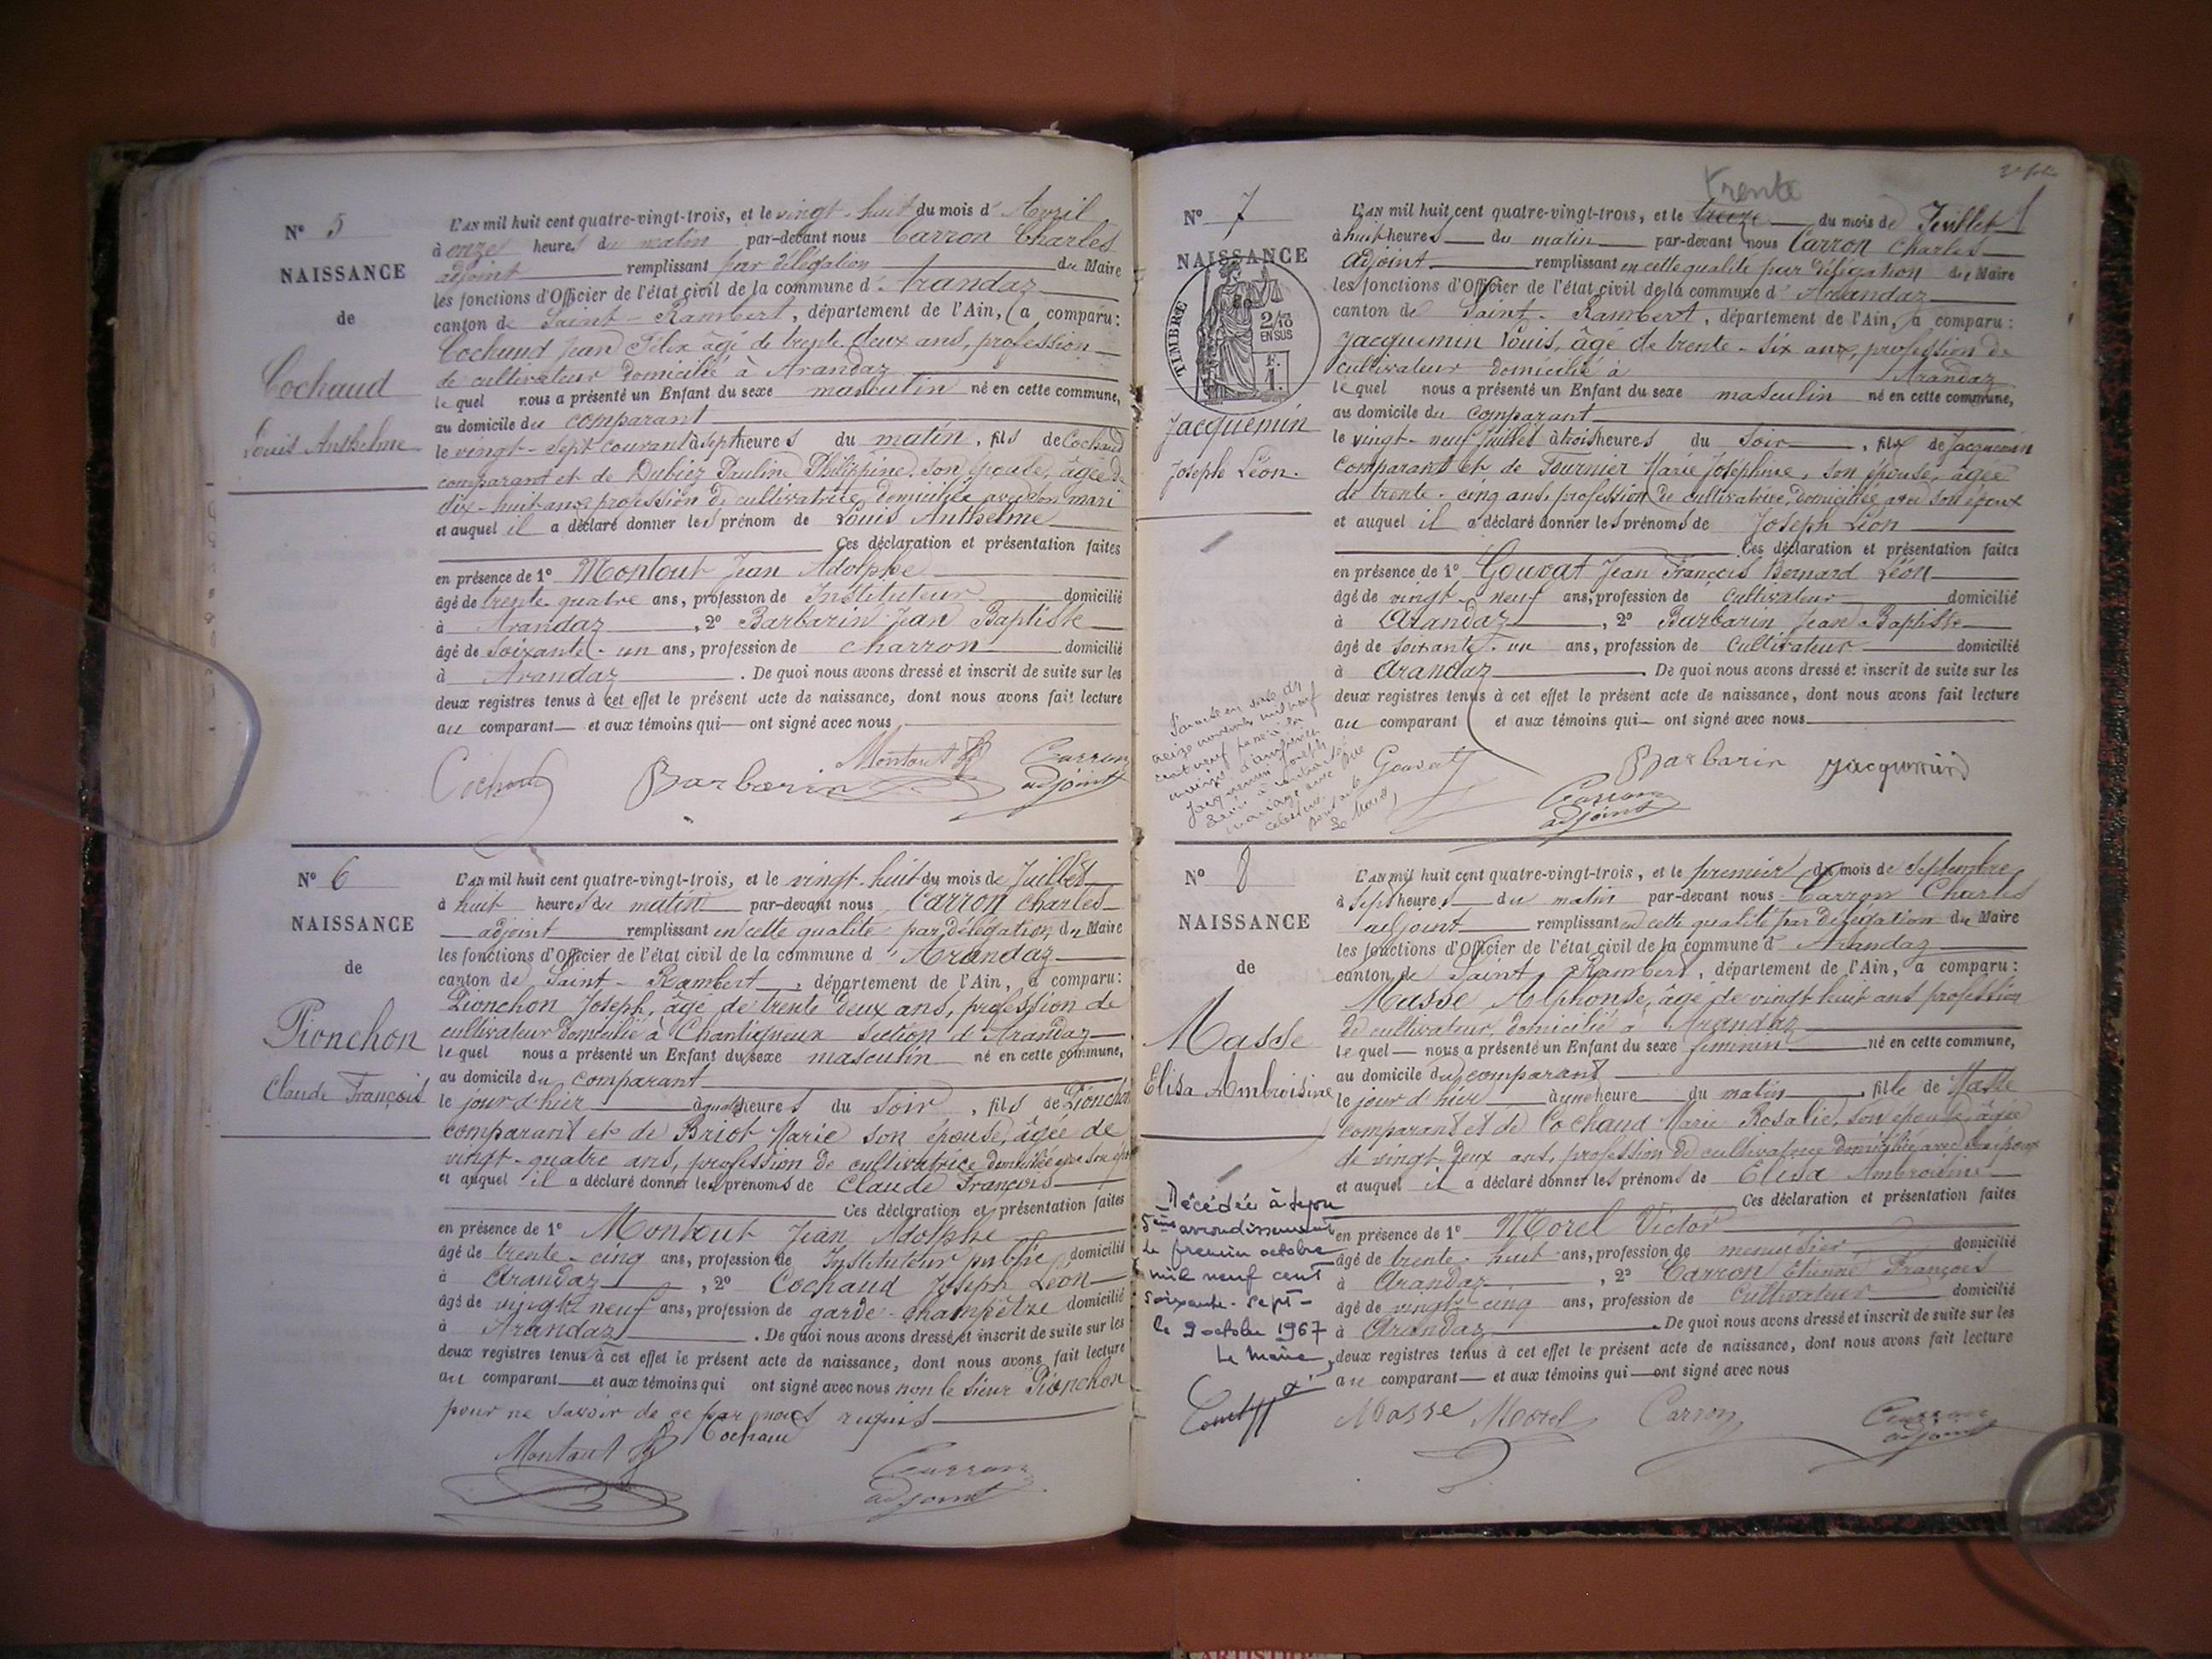 N° 5
NAISSANCE
de
Cochaud
Louis Anthelme
L'AN mil huit cent quatre-vingt-trois, et le vingt-huit du mois d'Avril
à onze heures du matin par-devant nous Carron Charles
adjoint remplissant par délégation du Maire
les fonctions d'Officier de l'état civil de la commune d'Arandaz
canton de Saint-Rambert, département de l'Ain, a comparu :
Cochaud Jean Félix âgé de trente deux ans, profession
de cultivateur domicilié à Arandaz
lequel nous a présenté un Enfant du sexe masculin né en cette commune,
au domicile du comparant
le vingt-sept courant à sept heures du matin, fils de Cochaud
comparant et de Dubiez Pauline Philippine, son épouse, âgée de
dix-huit ans profession de cultivatrice, domiciliée avec son mari
et auquel il a déclaré donner les prénom de Louis Anthelme
Ces déclaration et présentation faites
en présence de 1° Montout Jean Adolphe
âgé de trente quatre ans, profession de Instituteur domicilié
à Arandaz, 2° Barbarin Jean Baptiste
âgé de soixante-un ans, profession de charron domicilié
à Arandaz. De quoi nous avons dressé et inscrit de suite sur les
deux registres tenus à cet effet le présent acte de naissance, dont nous avons fait lecture
au comparant et aux témoins qui ont signé avec nous
Cochaud Barbarin Montout Carron
adjoint
N° 6
NAISSANCE
de
Pionchon
Claude François
L'AN mil huit cent quatre-vingt-trois, et le vingt-huit du mois de Juillet
à huit heures du matin par-devant nous Carron Charles
adjoint remplissant en cette qualité par délégation du Maire
les fonctions d'Officier de l'état civil de la commune d'Arandaz
canton de Saint-Rambert, département de l'Ain, a comparu :
Pionchon Joseph, âgé de trente deux ans, profession de
cultivateur domicilié à Chantigneux section d'Arandaz
lequel nous a présenté un Enfant du sexe masculin né en cette commune,
au domicile du comparant
le jour d'hier à quatre heures du soir, fils de Pionchon
comparant et de Briot Marie son épouse, âgée de
vingt-quatre ans, profession de cultivatrice domiciliée avec son
et auquel il a déclaré donner les prénoms de Claude François
Ces déclaration et présentation faites
en présence de 1° Montout Jean Adolphe
âgé de trente-cinq ans, profession de Instituteur public domicilié
à Arandaz, 2° Cochaud Joseph Léon
âgé de vingt neuf ans, profession de garde-champêtre domicilié
à Arandaz. De quoi nous avons dressé et inscrit de suite sur les
deux registres tenus à cet effet le présent acte de naissance, dont nous avons fait lecture
au comparant et aux témoins qui ont signé avec nous non le sieur Pionchon
pour ne savoir de ce par nous requis
Montout Cochaud
Carron
adjoint
N° 7
NAISSANCE
TIMBRE
2/10
EN SUS
F.
1.
Jacquemin
Joseph Léon.
trente
L'AN mil huit cent quatre-vingt-trois, et le treize du mois de Juillet
à huit heures du matin par-devant nous Carron Charles
adjoint remplissant en cette qualité par délégation du Maire
les fonctions d'Officier de l'état civil de la commune d'Arandaz
canton de Saint-Rambert, département de l'Ain, a comparu :
Jacquemin Louis, âgé de trente-six ans, profession de
cultivateur domicilié à Arandaz
lequel nous a présenté un Enfant du sexe masculin né en cette commune,
au domicile du comparant
le vingt-neuf Juillet à trois heures du soir, fils de Jacquemin
comparant et de Fournier Marie Joséphine, son épouse, âgée
de trente-cinq ans, profession de cultivatrice, domiciliée avec son époux
et auquel il a déclaré donner les prénoms de Joseph Léon
Ces déclaration et présentation faites
en présence de 1° Gouvat Jean François Bernard Léon
âgé de vingt-neuf ans, profession de cultivateur domicilié
à Arandaz, 2° Barbarin Jean Baptiste
âgé de soixante-un ans, profession de cultivateur domicilié
à Arandaz. De quoi nous avons dressé et inscrit de suite sur les
deux registres tenus à cet effet le présent acte de naissance, dont nous avons fait lecture
au comparant et aux témoins qui ont signé avec nous
Gouvat Barbarin Jacquemin
Carron
adjoint
Jacquemin Joseph
mariage avec
Le Maire
N° 8
NAISSANCE
de
Masse
Elisa Ambroisine
L'AN mil huit cent quatre-vingt-trois, et le premier du mois de septembre
à sept heures du matin par-devant nous Carron Charles
adjoint remplissant en cette qualité par délégation du Maire
les fonctions d'Officier de l'état civil de la commune d'Arandaz
canton de Saint-Rambert, département de l'Ain, a comparu :
Masse Alphonse, âgé de vingt huit ans profession
de cultivateur, domicilié à Arandaz
lequel nous a présenté un Enfant du sexe féminin né en cette commune,
au domicile du comparant
le jour d'hier à une heure du matin, fille de Masse
comparant et de Cochaud Marie Rosalie, son épouse, âgée
de vingt deux ans, profession de cultivatrice domiciliée avec son époux
et auquel il a déclaré donner les prénoms de Elisa Ambroisine
Ces déclaration et présentation faites
en présence de 1° Morel Victor
âgé de trente-huit ans, profession de menuisier domicilié
à Arandaz, 2° Carron Etienne François
âgé de vingt cinq ans, profession de cultivateur domicilié
à Arandaz. De quoi nous avons dressé et inscrit de suite sur les
deux registres tenus à cet effet le présent acte de naissance, dont nous avons fait lecture
au comparant et aux témoins qui ont signé avec nous
Masse Morel Carron Carron
adjoint
Décédée à Lyon
5ème arrondissement
le premier octobre
mil neuf cent
soixante-sept-
le 9 octobre 1967
Le Maire,